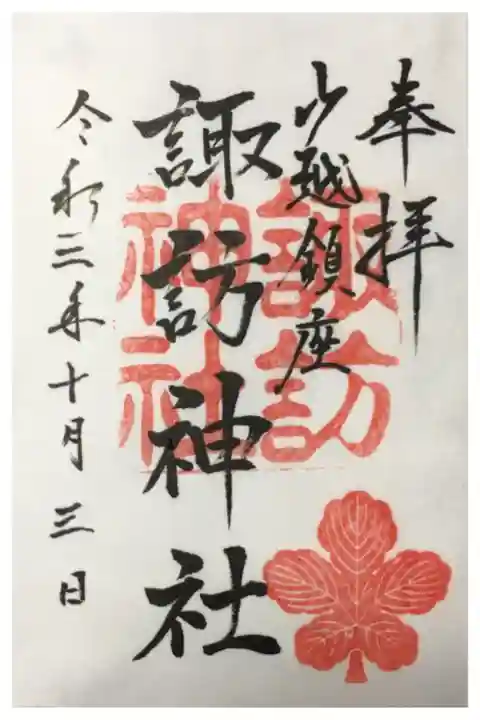 奉拝
越鎮座
諏訪神社
令和三年十月三日
諏訪
神社